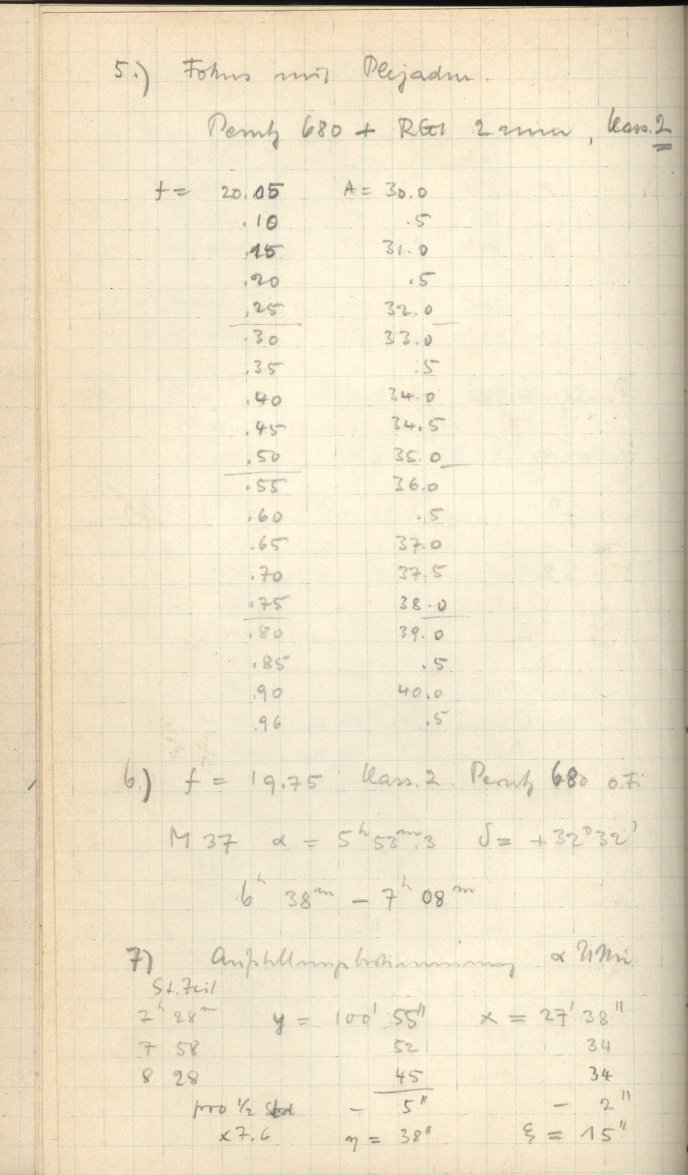 5.) Fokus mit Plejaden.
Perutz 680 + RG1 2 mm, Kass. 2
f = 20.05 A = 30.0
.10 .5
.15 31.0
.20 .5
.25 32.0
.30 33.0
.35 .5
.40 34.0
.45 34.5
.50 35.0
.55 36.0
.60 .5
.65 37.0
.70 37.5
.75 38.0
.80 39.0
.85 .5
.90 40.0
.96 .5
6.) f = 19.75 Kass. 2. Perutz 680 o.Fi
M 37 α = 5ʰ 53ᵐ.3 δ = +32° 32'
6ʰ 38ᵐ – 7ʰ 08ᵐ
7) Aufstellungsbestimmung α UMi
St. Zeit
7ʰ 28ᵐ y = 100' 55" x = 27' 38"
7 58 52 34
8 28 45 34
pro 1/2 Std – 5" – 2"
x7.6 η = 38" ξ = 15"